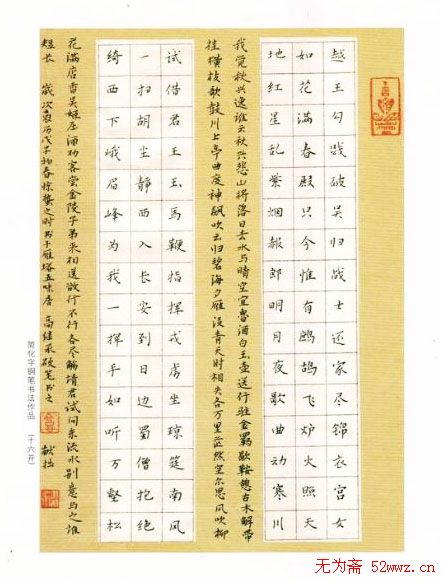 越王勾践破吴归战士还家尽锦衣宫女
如花满春殿只今惟有鹧鸪飞炉火照天
地红星乱紫烟赧郎明月夜歌曲动寒川
我觉秋兴逸谁云秋兴悲山将落日去水与晴空宜鲁酒白玉壶送行驻金羁歇鞍憩古木解带
挂横枝歌鼓川上亭曲度神飙吹云归碧海夕雁没青天时相失各万里茫然空尔思风吹柳
试借君王玉马鞭指挥戎虏坐琼筵南风
一扫胡尘静西入长安到日边蜀僧抱绿
绮西下峨眉峰为我一挥手如听万壑松
花满店香吴姬压酒劝客尝金陵子弟来相送欲行不行各尽觞请君试问东流水别意与之谁
短长 岁次农历戊子初春惊蛰之时书于雁塔五味居 高继承硬笔书之 献拙
简化字钢笔书法作品 (十六开)
无为斋 52wwz.cn